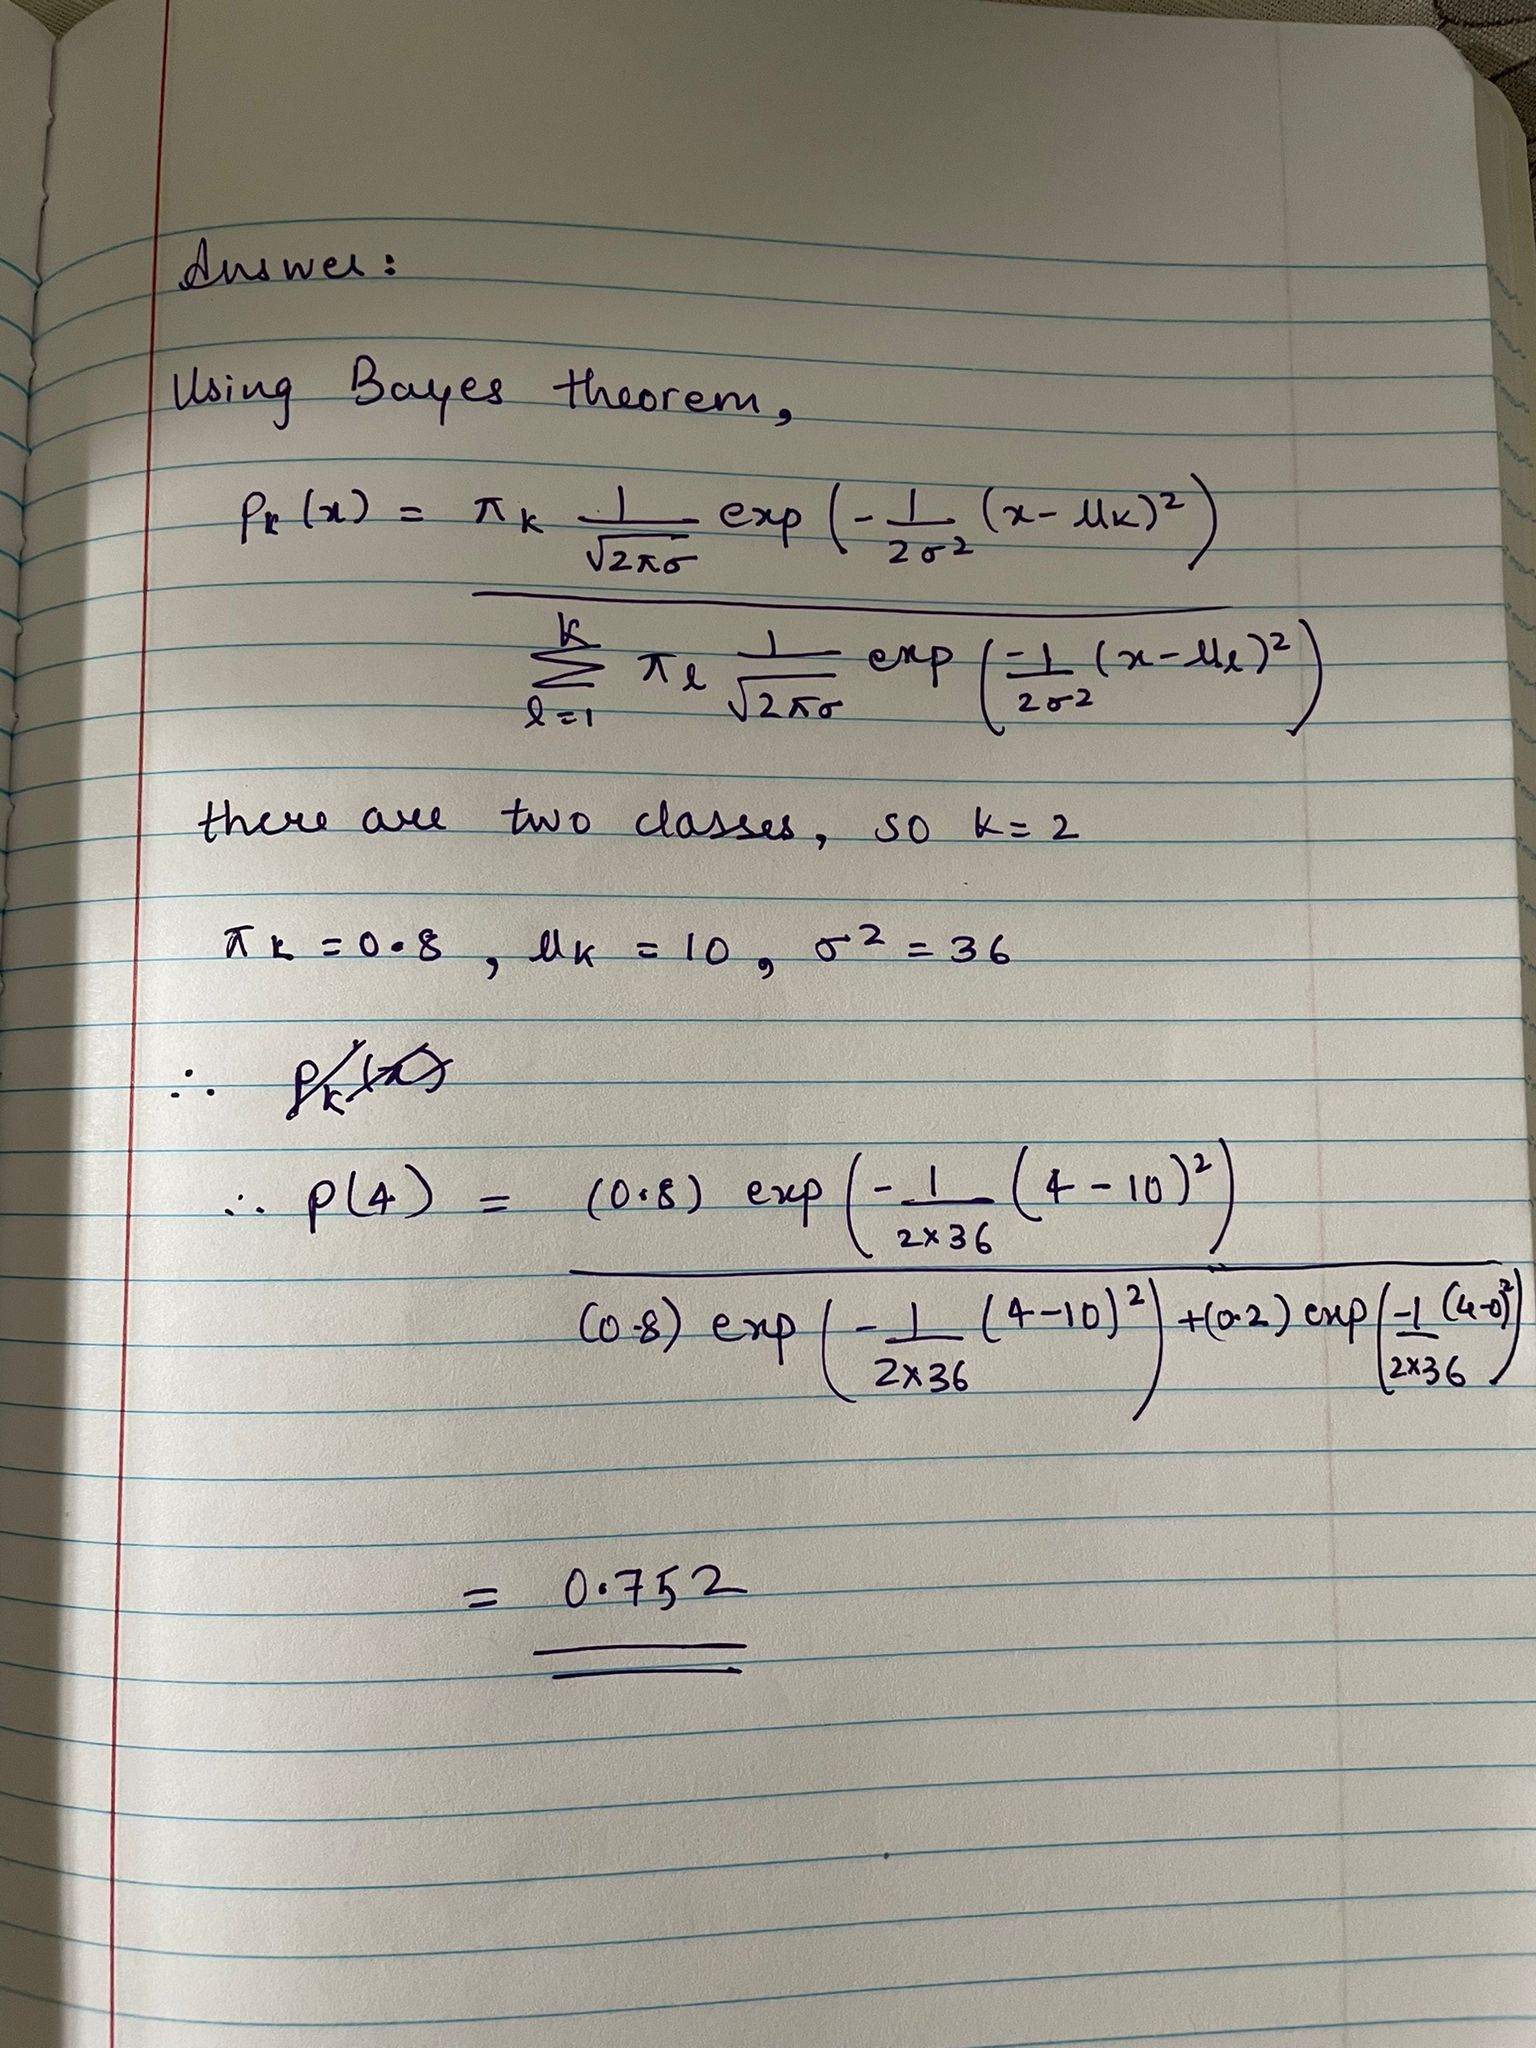 Answer:
Using Bayes theorem,
Pk (x) = πk 1/√2πσ exp (-1/2σ² (x-μk)²)
K∑l=1 πl 1/√2πσ exp (-1/2σ² (x-μl)²)
there are two classes, so k=2
πk = 0.8, μk = 10, σ² = 36
∴ Pk(x)
∴ P(4) = (0.8) exp (-1/2×36 (4-10)²)
(0.8) exp (-1/2×36 (4-10)²) + (0.2) exp (-1/2×36 (4-0)²)
= 0.752